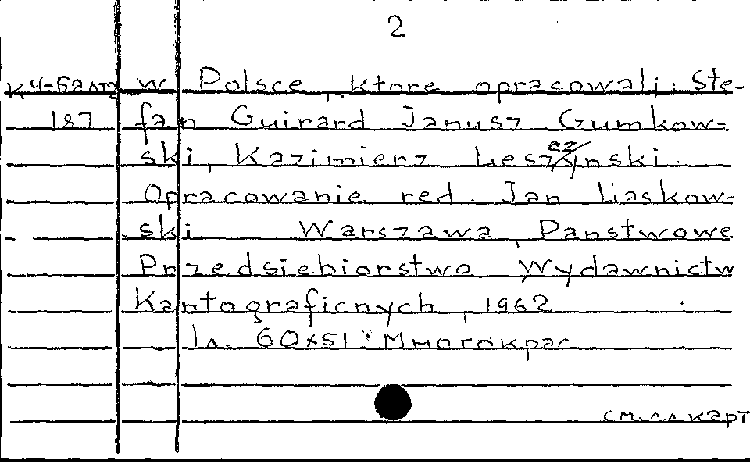 2
К4-Балт w Polsce, które opracowali: Ste-
187 fan Guirard Janusz Gumkow-
ski, Kazimierz Leszczynski.
Opracowanie red. Jan Liaskow-
ski Warszawa, Panstwowe
Przedsiebiorstwo Wydawnictw
Kartograficznych, 1962
1л. 60x51 Многокрас
см. сл карт